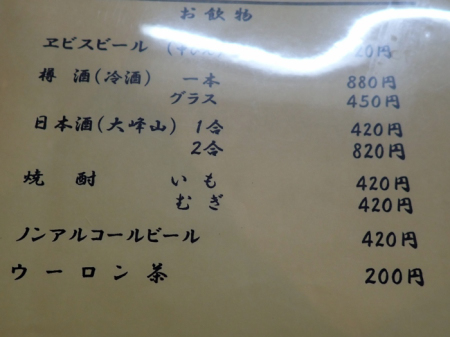 お飲物
ヱビスビール
樽酒(冷酒) 一本 880円
グラス 450円
日本酒(大峰山) 1合 420円
2合 820円
焼酎 いも 420円
むぎ 420円
ノンアルコールビール 420円
ウーロン茶 200円